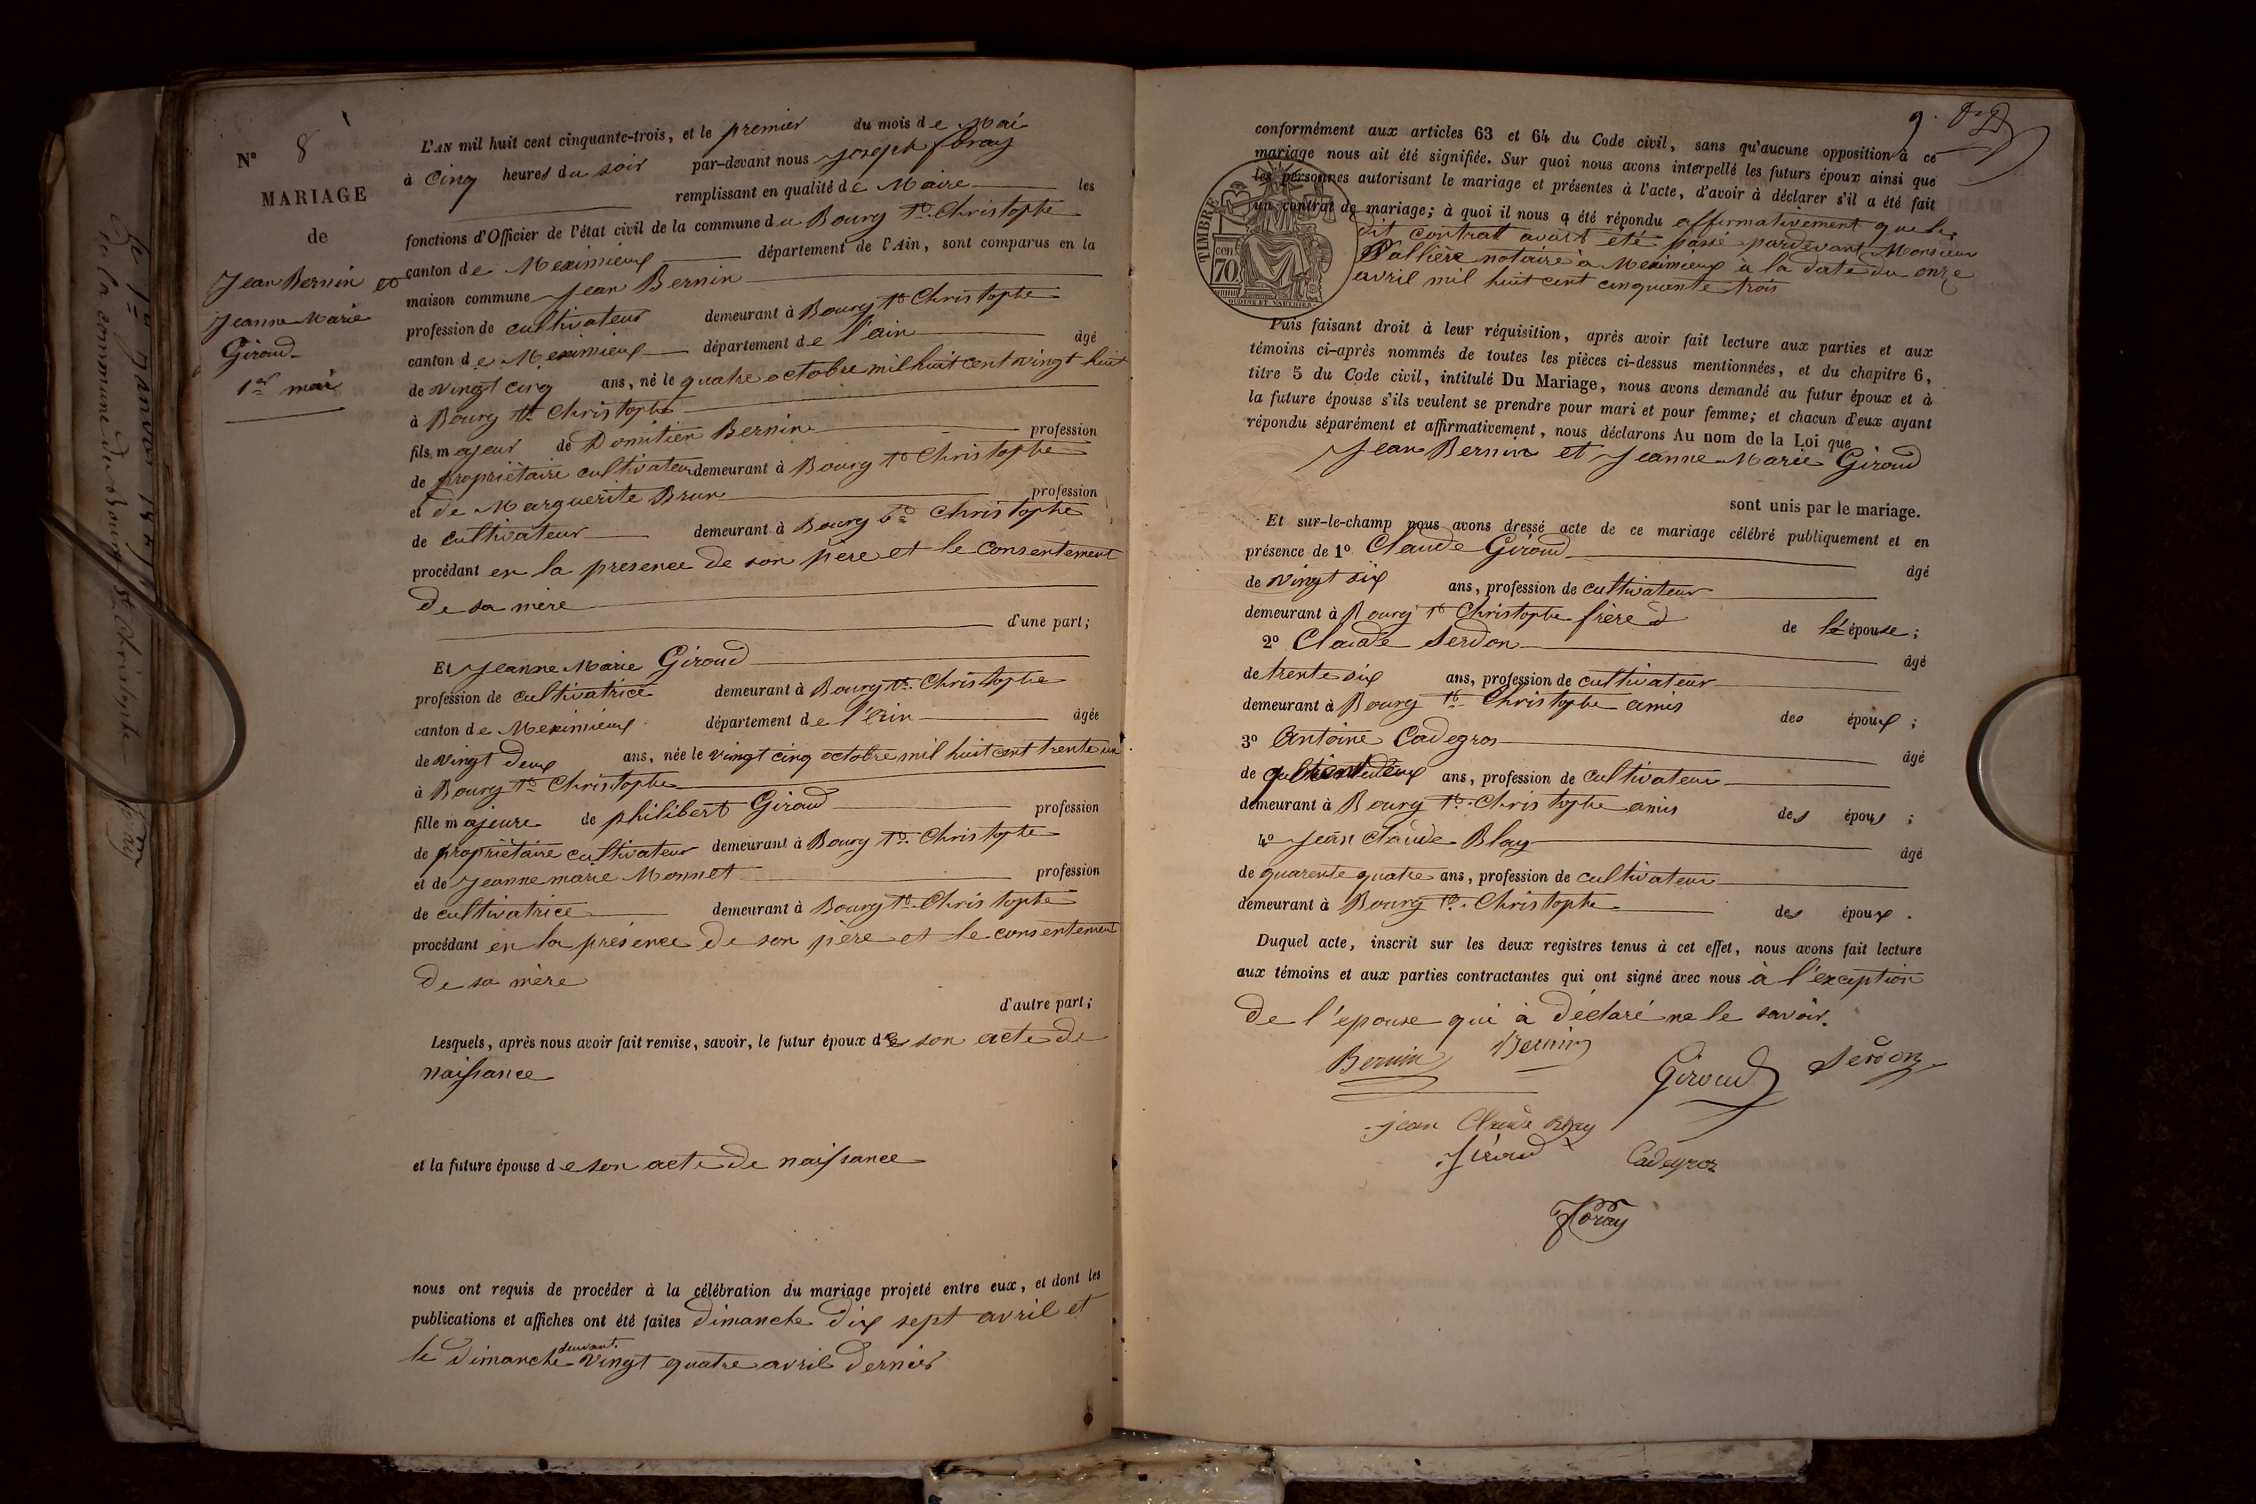 N° 8
MARIAGE
de
Jean Bernin et
Jeanne Marie
Giroud
1er mai
L'AN mil huit cent cinquante-trois, et le premier du mois de Mai
à Cinq heures du soir par-devant nous Joseph foray
remplissant en qualité de Maire les
fonctions d'Officier de l'état civil de la commune du Bourg St Christophe
canton de Meximieux département de l'Ain, sont comparus en la
maison commune Jean Bernin
profession de cultivateur demeurant à Bourg St Christophe
canton de Meximieux département de l'ain âgé
de vingt cinq ans, né le quatre octobre mil huit cent vingt huit
à Bourg St Christophe
fils majeur de Domitien Bernin profession
de propriétaire cultivateur demeurant à Bourg St Christophe
et de Marguerite Brun profession
de cultivateur demeurant à Bourg St Christophe
procédant en la presence de son père et le consentement
de sa mère
d'une part;
Et Jeanne Marie Giroud
profession de cultivatrice demeurant à Bourg St Christophe
canton de Meximieux département de l'Ain âgée
de vingt deux ans, née le vingt cinq octobre mil huit cent trente un
à Bourg St Christophe
fille majeure de philibert Giroud profession
de propriétaire cultivateur demeurant à Bourg St Christophe
et de Jeanne marie Monnet profession
de cultivatrice demeurant à Bourg St Christophe
procédant en la présence de son père et le consentement
de sa mère
d'autre part;
Lesquels, après nous avoir fait remise, savoir, le futur époux de son acte de
naissance
et la future épouse de son acte de naissance
nous ont requis de procéder à la célébration du mariage projeté entre eux, et dont les
publications et affiches ont été faites dimanche dix sept avril et
le dimanche suivant vingt quatre avril dernier
9.
conformément aux articles 63 et 64 du Code civil, sans qu'aucune opposition à ce
mariage nous ait été signifiée. Sur quoi nous avons interpellé les futurs époux ainsi que
les personnes autorisant le mariage et présentes à l'acte, d'avoir à déclarer s'il a été fait
un contrat de mariage; à quoi il nous a été répondu affirmativement que le
dit contrat avait été passé pardevant Monsieur
Pallière notaire à Meximieux à la date du onze
avril mil huit cent cinquante trois
TIMBRE
70
Puis faisant droit à leur réquisition, après avoir fait lecture aux parties et aux
témoins ci-après nommés de toutes les pièces ci-dessus mentionnées, et du chapitre 6,
titre 5 du Code civil, intitulé Du Mariage, nous avons demandé au futur époux et à
la future épouse s'ils veulent se prendre pour mari et pour femme; et chacun d'eux ayant
répondu séparément et affirmativement, nous déclarons Au nom de la Loi que
Jean Bernin et Jeanne Marie Giroud
sont unis par le mariage.
Et sur-le-champ nous avons dressé acte de ce mariage célébré publiquement et en
présence de 1° Claude Giroud âgé
de vingt six ans, profession de cultivateur
demeurant à Bourg St Christophe frère de l'épouse;
2° Claude Serdon âgé
de trente six ans, profession de cultivateur
demeurant à Bourg St Christophe amis des époux;
3° Antoine Cadegros âgé
de ans, profession de cultivateur
demeurant à Bourg St Christophe amis des époux;
4° Jean Claude Blay âgé
de quarente quatre ans, profession de cultivateur
demeurant à Bourg St Christophe des époux.
Duquel acte, inscrit sur les deux registres tenus à cet effet, nous avons fait lecture
aux témoins et aux parties contractantes qui ont signé avec nous à l'exception
de l'epouse qui à déclaré ne le savoir.
Bernin Bernin Giroud Serdon
jean Claude Blay
Giroud Cadegros
foray